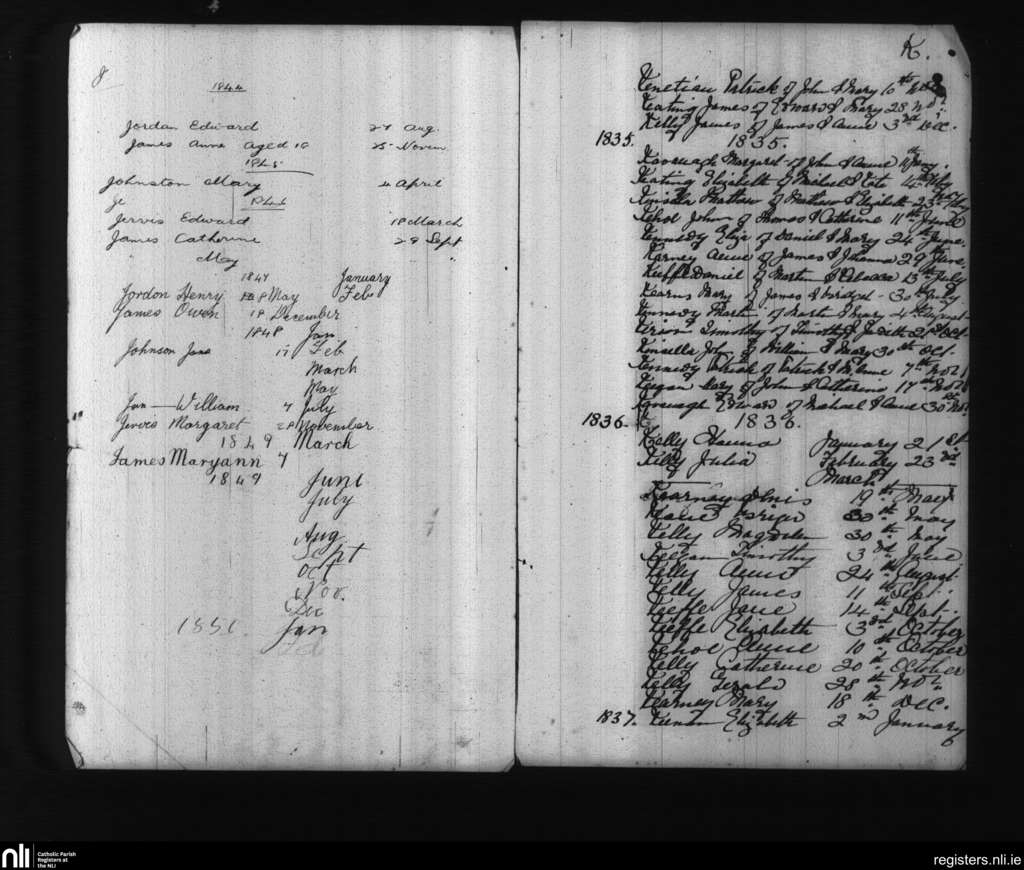 J
1844
Jordan Edward 27 Aug.
James Anne aged 16 25 Novem
1845
Johnston Mary 4 April
Je 1846
Jervis Edward 18 March
James Catherine 29 Sept
May
1847 January
Jordon Henry 8 May Feb
James Owen 18 December
1848 Jan
Johnson Jane 17 Feb
March
May
Jan — William 7 July
Jervis Margaret 28 November
1849 March
James Maryann 7
1849 June
July
Aug
Sept
Oct
Nov.
Dec
1850 Jan
Feb
K.
Patrick of John & Mary 10th Oct
Keating James of Edward & Mary 28 Nov.
Kelly James of James & Anne 3rd Dec.
1835. 1835.
Kavenagh Margaret of John & Anne
Keating Elizabeth of Michael & Cate 4th Feby
Kinsella Matthew of Mathew & Elizabeth 23rd
Kehoe John of Thomas & Catherine 11th June
Kennedy Eliza of Daniel & Mary 24th June.
Karney Anne of James & Johanna 29 June
Kieffe Daniel of Martin & 13th July
Kearns Mary of James & Bridget - 30th July
Kennedy Martin of Martin & Mary 4th August
Timothy of Timothy & Judith 21st Oct.
Kinsella John of William & Mary 30th Oct.
Kennedy Patrick of Patrick & 7th Nov
Keegan Mary of John & Catherine 17th Nov
Kavenagh Edward of Michael & Anne 30th Nov
1836. K 1836.
Kelly Hanna January 21st
Kelly Julia February 23rd
March
Kearney Denis 19th May
30th May
Kelly Magdalen 30th May
Keegan Timothy 3rd June
Kelly Anne 24th August.
Kelly James 11th Sept.
Kieffe Jane 14th Sept.
Kieffe Elizabeth 3rd October
Kehoe Anne 10th October
Kelly Catherine 20th October
Kelly Gerald 28th Nov.
Kearney Mary 18th Dec.
1837. Elizabeth 2nd January
nli Catholic Parish
Registers at
the NLI
registers.nli.ie